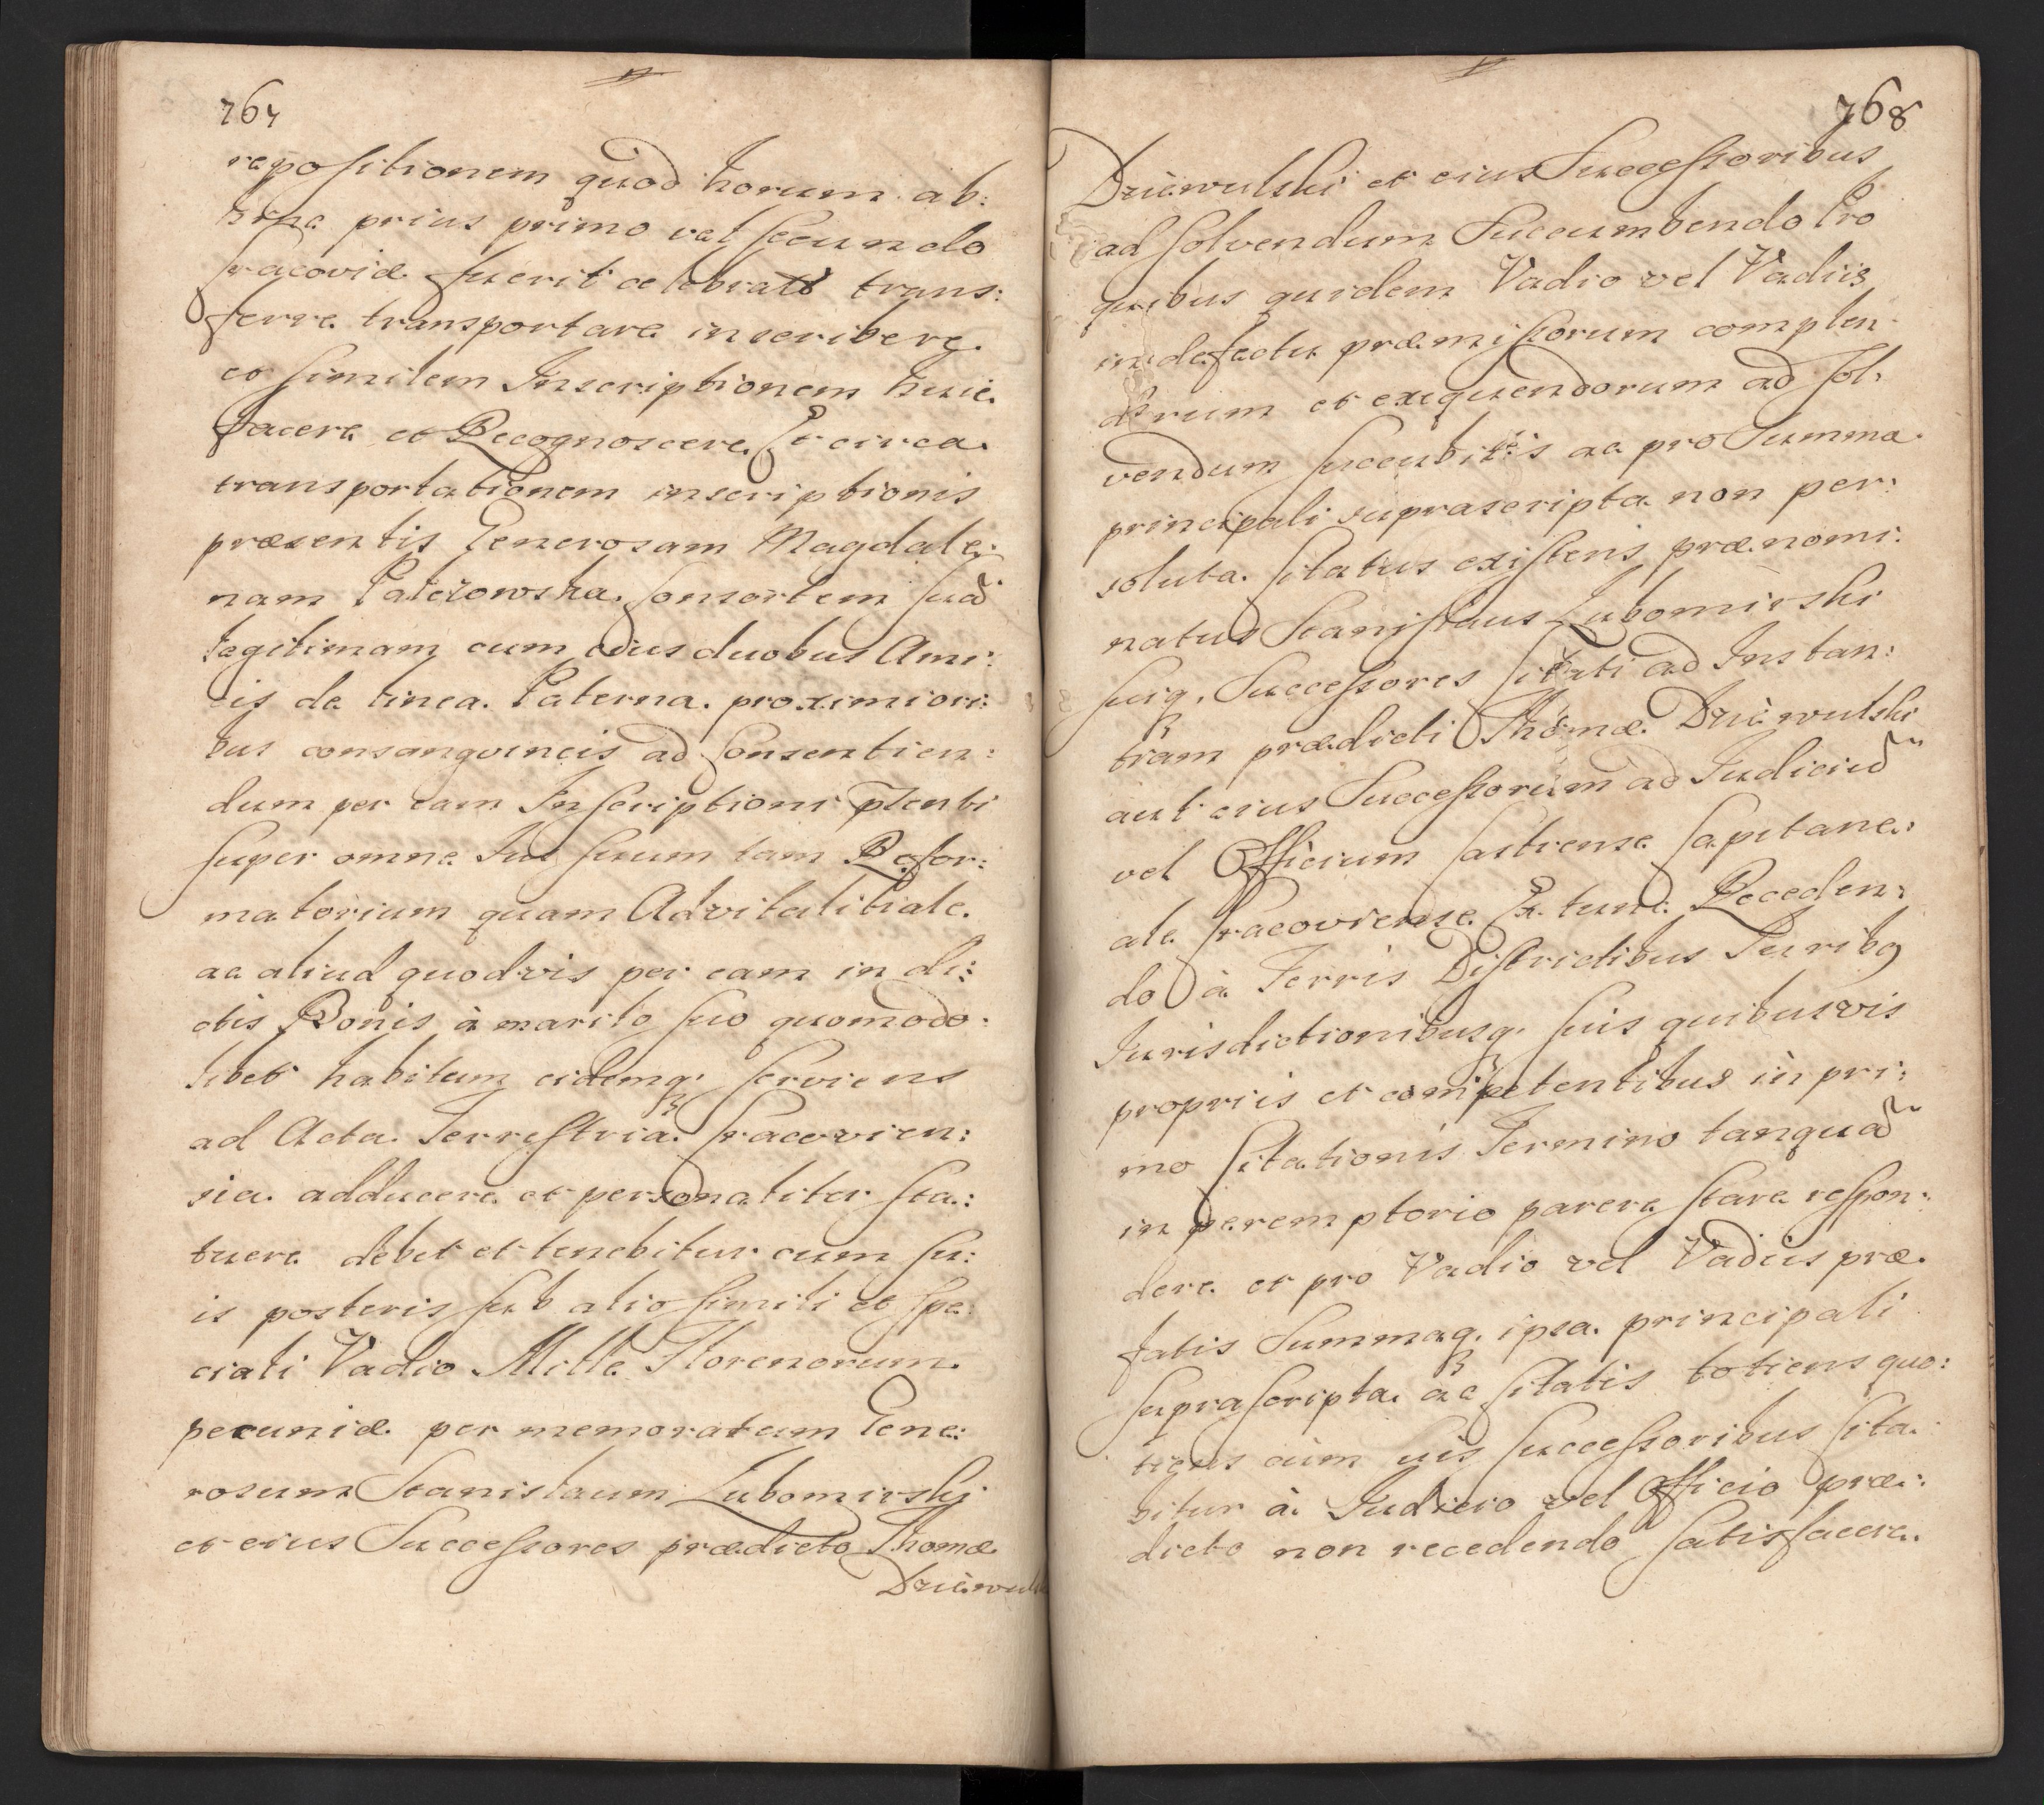 767
repositionem quod horum ab:
terna prius primo vel secundo
Cracoviæ fuerit celebratū trans:
ferre transportare inscribere
et similem Inscriptionem huic
facere et Recognoscere Et circa
transportationem inscriptionis
præsentis Generosam Magdale:
nam Paterowska Consortem suã
legitimam cum eius duobus Ami:
cis de linea Paterna proximiori:
bus consanguineis ad Consentien:
dum per eam Inscriptioni p̃senti
super omne Jus suum tam Refor:
matorium quam Advitalitiale
ac aliud quodvis per eam in di:
ctis Bonis à marito suo quomodo:
libet habitum eidemq; serviens
ad Acta Terrestria Cracovien:
sia adducere et personaliter sta:
tuere debet et tenebitur cum su:
is posteris sub alio simili et spe:
ciali Vadio Mille Florenorum
pecuniæ per memoratum Gene:
rosum Stanislaum Lubomirski
et eius Successores prædicto Thomæ
Dziewul
768
Dziewulski et eius Successoribus
ad solvendum Succumbendo Pro
quibus quidem Vadio vel Vadiis
in defectu præmissorum complen
dorum et exequendorum ad sol:
vendum succubitis ac pro Summa
principali suprascripta non per:
soluta Citatus existens prænomi:
natus Stanislaus Lubomirski
suiq; Successores Citati ad Instan:
tiam prædicti Thomæ Dziewulski
aut eius Successorum ad Judiciũ
vel Officium Castrense Capitane:
ale Cracoviense Ex tunc Receden:
do à Terris Districtibus Juribq
Jurisdictionibusq; suis quibusvis
propriis et competentibus in pri:
mo Citationis Termino tanquã
in peremptorio parere stare respon:
dere et pro Vadio vel Vadiis præ
fatis Summaq; ipsa principali
suprascripta ac Citatis totiens quo:
tiens cum suis successoribus Cita:
bitur à Judicio vel Officio præ:
dicto non recedendo satisfacere